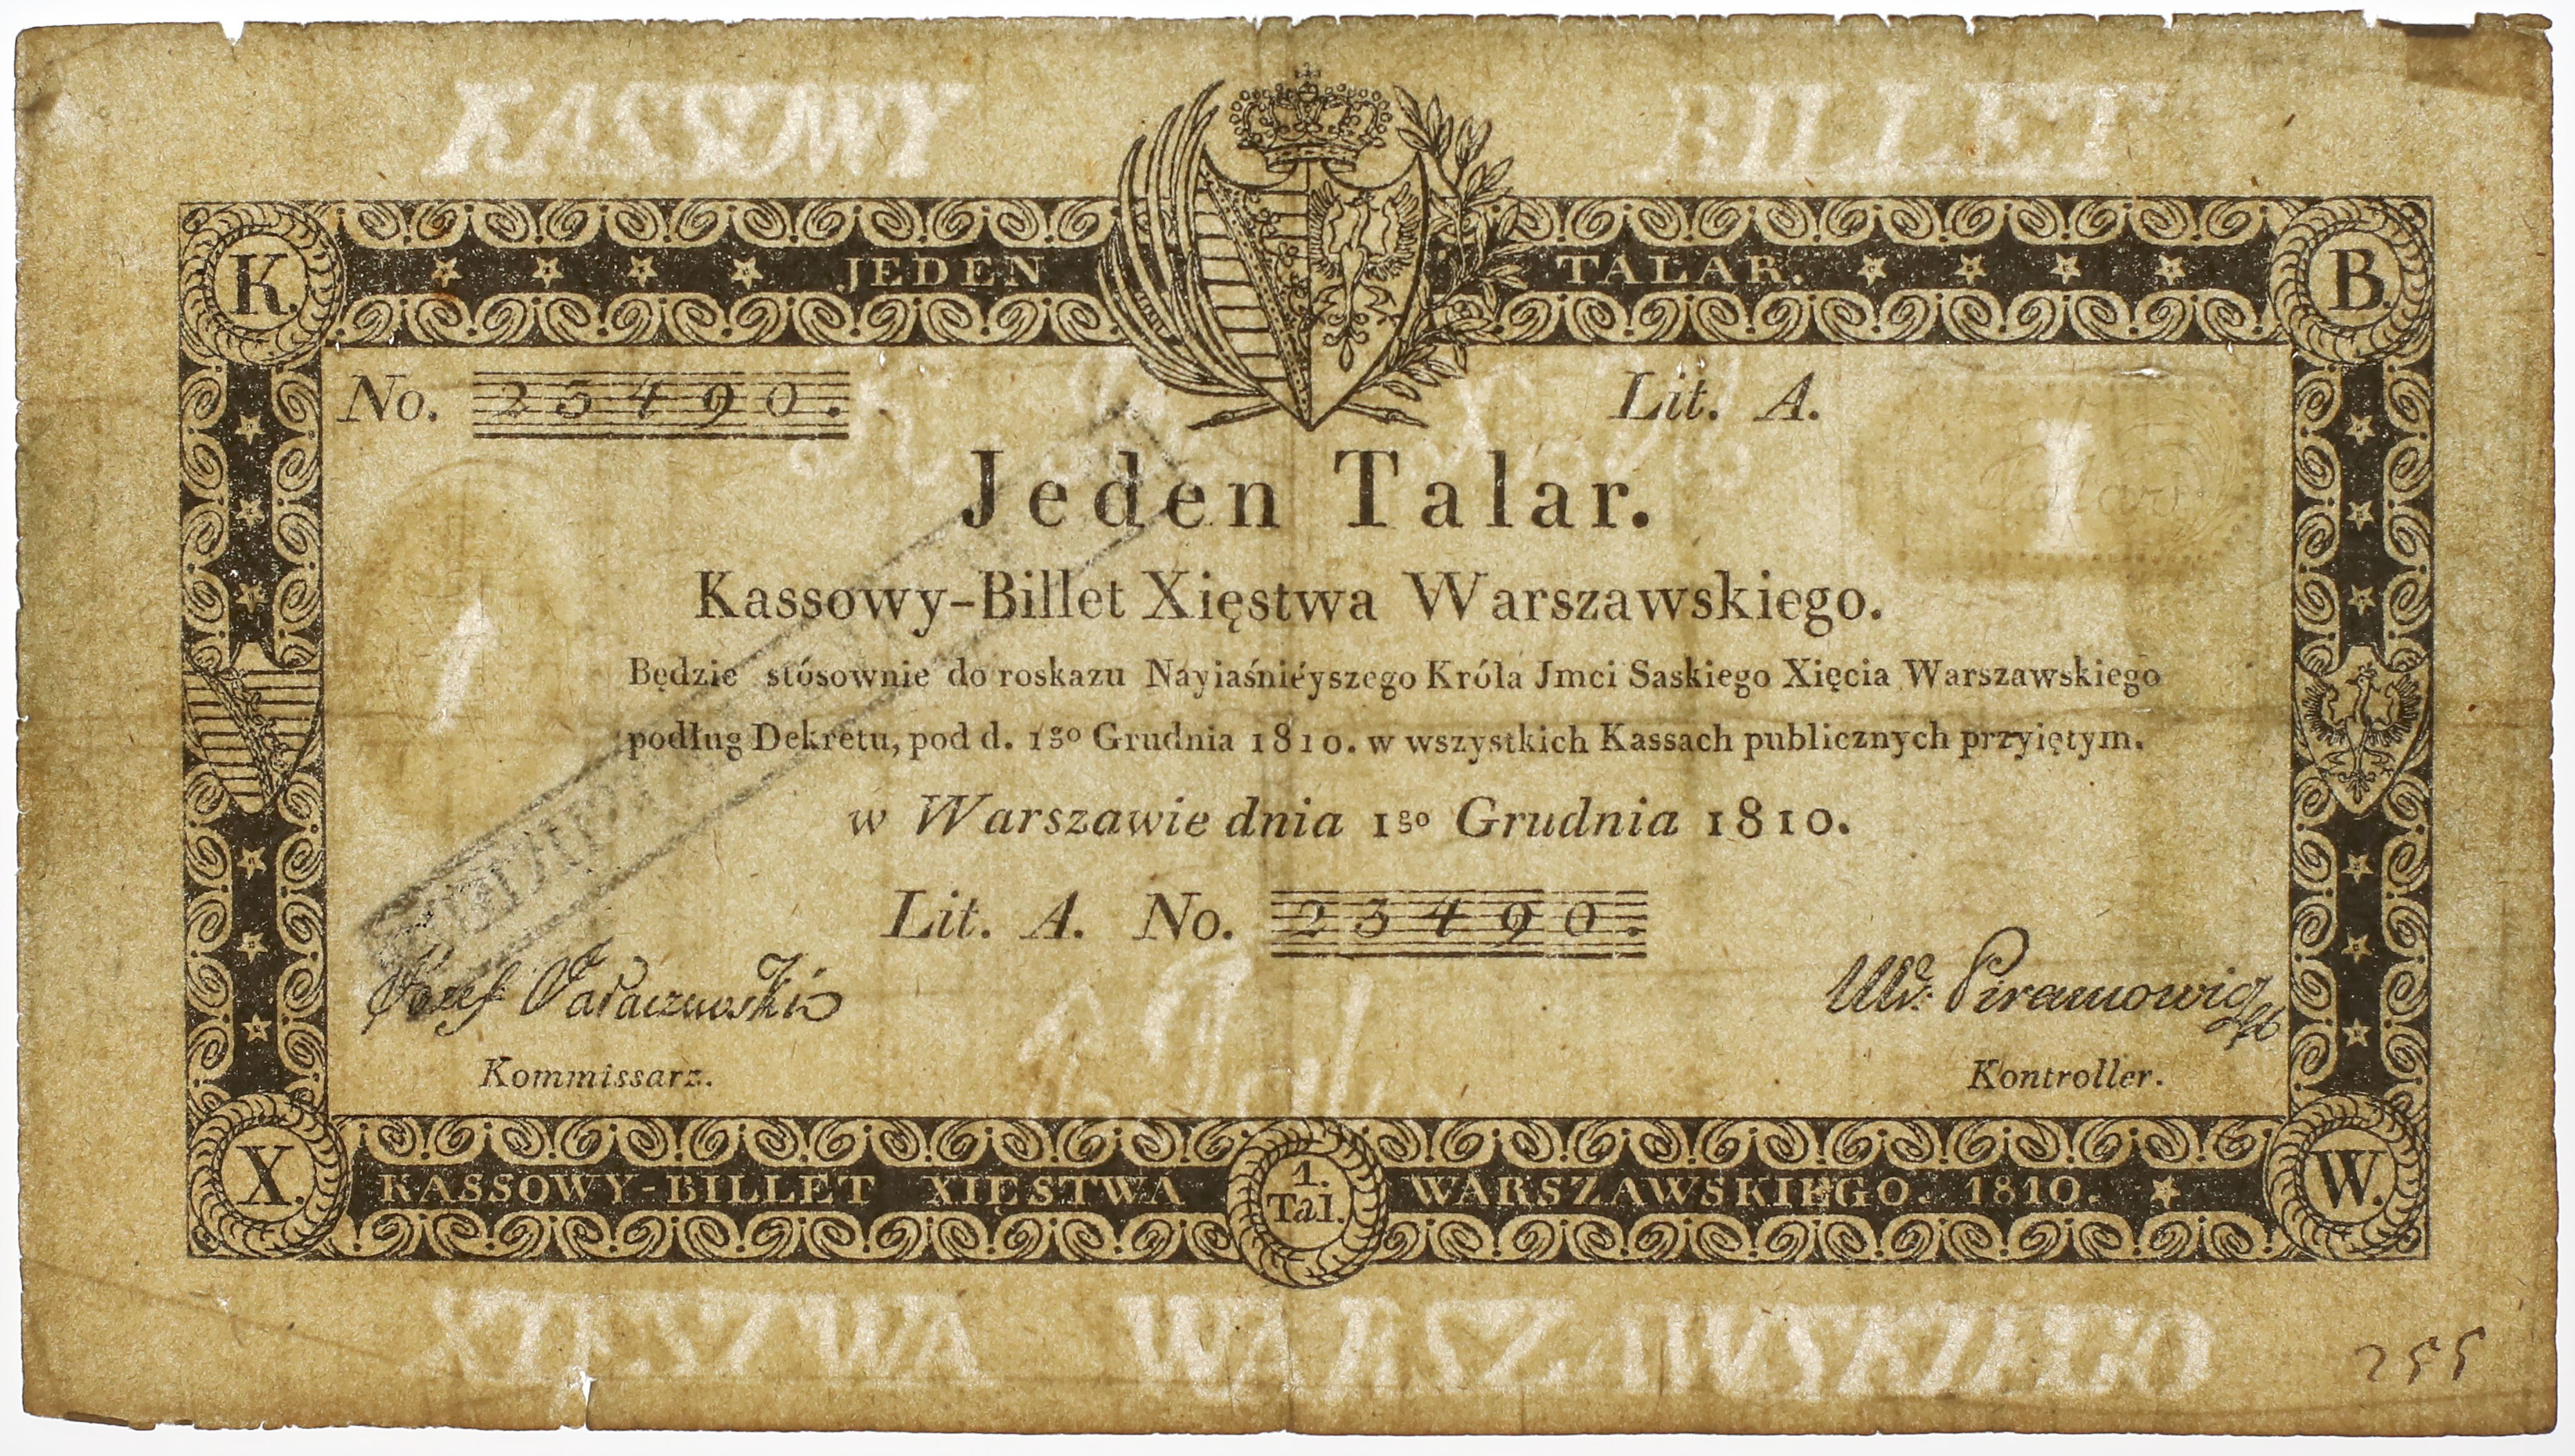 KASSOWY BILLET
K. JEDEN TALAR. B.
No. 23490. Lit. A.
Jeden Talar.
Kassowy-Billet Xięstwa Warszawskiego.
Będzie stósownie do roskazu Nayiaśniéyszego Króla Jmci Saskiego Xięcia Warszawskiego
podług Dekretu, pod d. 1go Grudnia 1810. w wszystkich Kassach publicznych przyiętym.
w Warszawie dnia 1go Grudnia 1810.
Lit. A. No. 23490.
Kommissarz. Kontroller.
X. KASSOWY-BILLET XIĘSTWA 1. Tal. WARSZAWSKIEGO. 1810. W.
XIĘSTWA WARSZAWSKIEGO
255